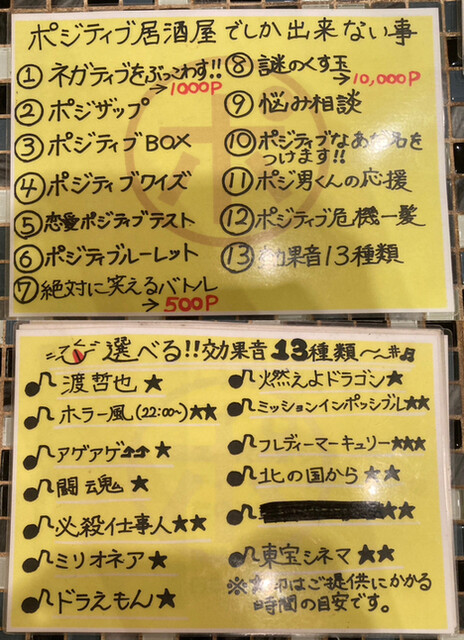 ポジティブ居酒屋でしか出来ない事
①ネガティブをぶっこわす!!
→1000P
②ポジザップ
③ポジティブBOX
④ポジティブクイズ
⑤恋愛ポジティブテスト
⑥ポジティブルーレット
⑦絶対に笑えるバトル
→500P
⑧謎のくす玉
→10,000P
⑨悩み相談
⑩ポジティブなあだ名を
つけます!!
⑪ポジ男くんの応援
⑫ポジティブ危機一髪
⑬効果音13種類
選べる!!効果音13種類〜♬
渡哲也★
ホラー風(22:00〜)★★
アゲアゲ⤴⤴★
闘魂★
必殺仕事人★★
ミリオネア★
ドラえもん★
燃えよドラゴン★
ミッションインポッシブル★★
フレディーマーキュリー★★★
北の国から★★
★★
東宝シネマ★★
※★印はご提供にかかる
時間の目安です。